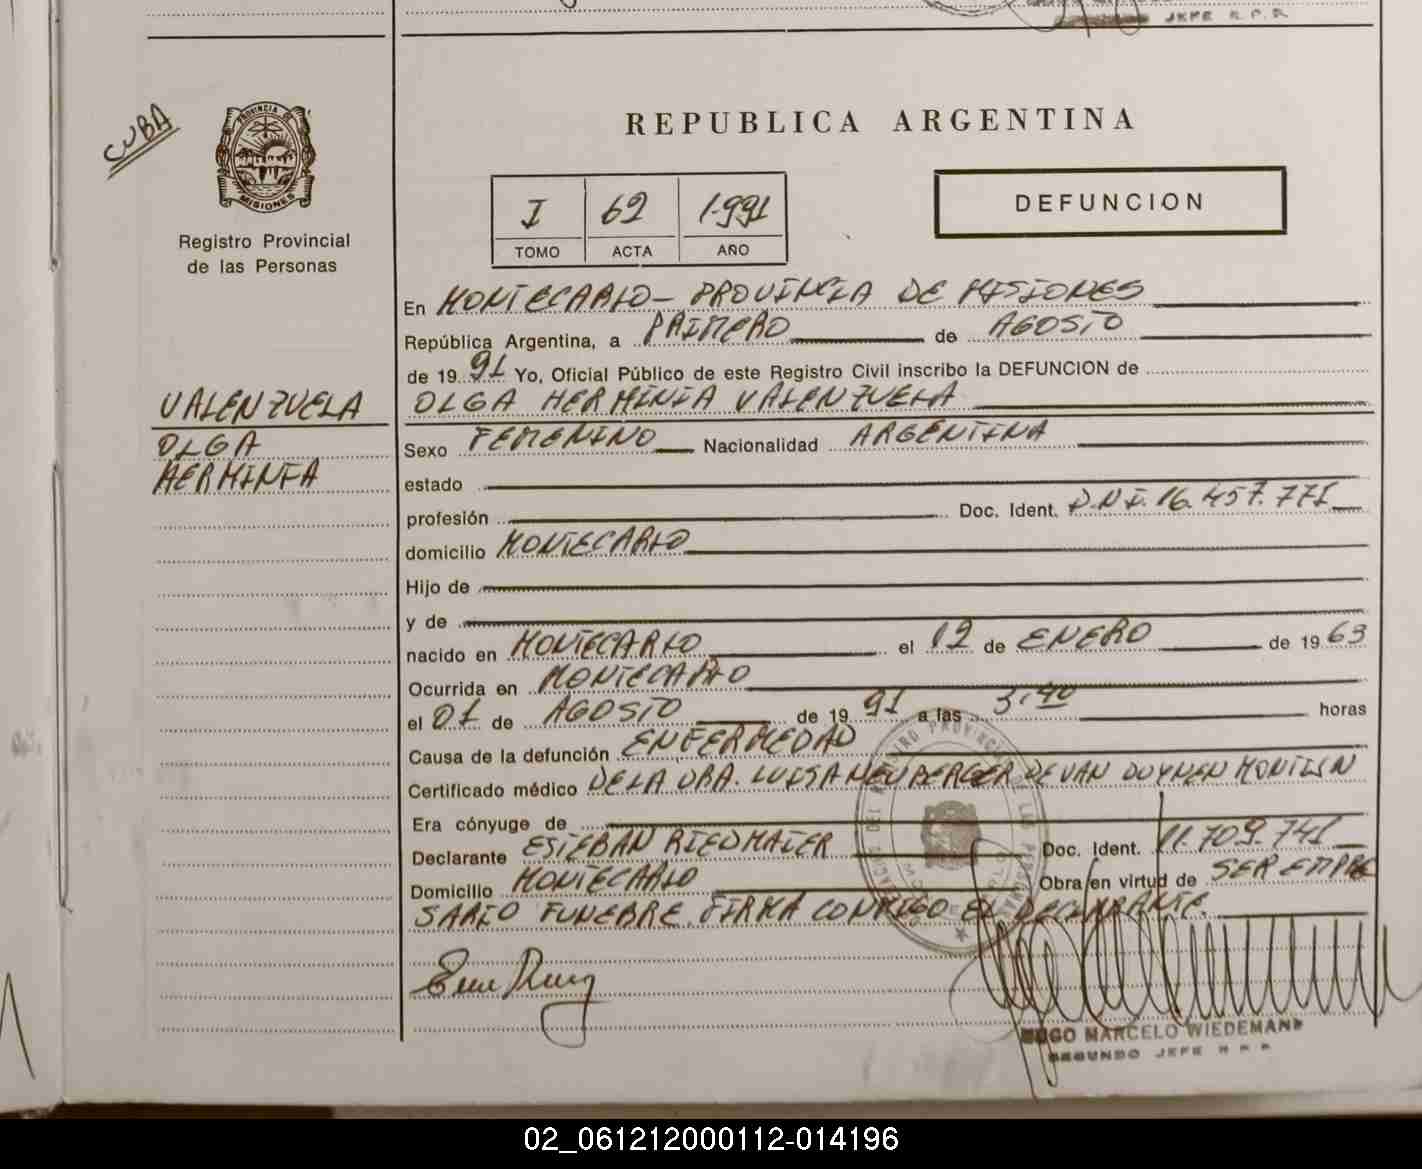 JEFE R. P. P.
CUBA
PROVINCIA DE
MISIONES
Registro Provincial
de las Personas
REPUBLICA ARGENTINA
I 62 1.991
TOMO ACTA AÑO
DEFUNCION
En MONTECARLO - PROVINCIA DE MISIONES
República Argentina, a PRIMERO de AGOSTO
de 19 91 Yo, Oficial Público de este Registro Civil inscribo la DEFUNCION de
VALENZUELA
OLGA HERMINIA VALENZUELA
OLGA
HERMINIA
Sexo FEMENINO Nacionalidad ARGENTINA
estado
profesión Doc. Ident. D.N.I. 16.457.771
domicilio MONTECARLO
Hijo de
y de
nacido en MONTECARLO el 12 de ENERO de 19 63
Ocurrida en MONTECARLO
el 01 de AGOSTO de 19 91 a las 3,40 horas
Causa de la defunción ENFERMEDAD
Certificado médico DE LA DRA. LUISA NEUBERGER DE VAN DUYNEN
Era cónyuge de
Declarante ESTEBAN RIEDMAIER Doc. Ident. 11.709.741
Domicilio MONTECARLO Obra en virtud de SER EMPRE
SARIO FUNEBRE. FIRMA CONMIGO EL DECLARANTE.
HUGO MARCELO WIEDEMANN
SEGUNDO JEFE R. P. P.
02_061212000112-014196